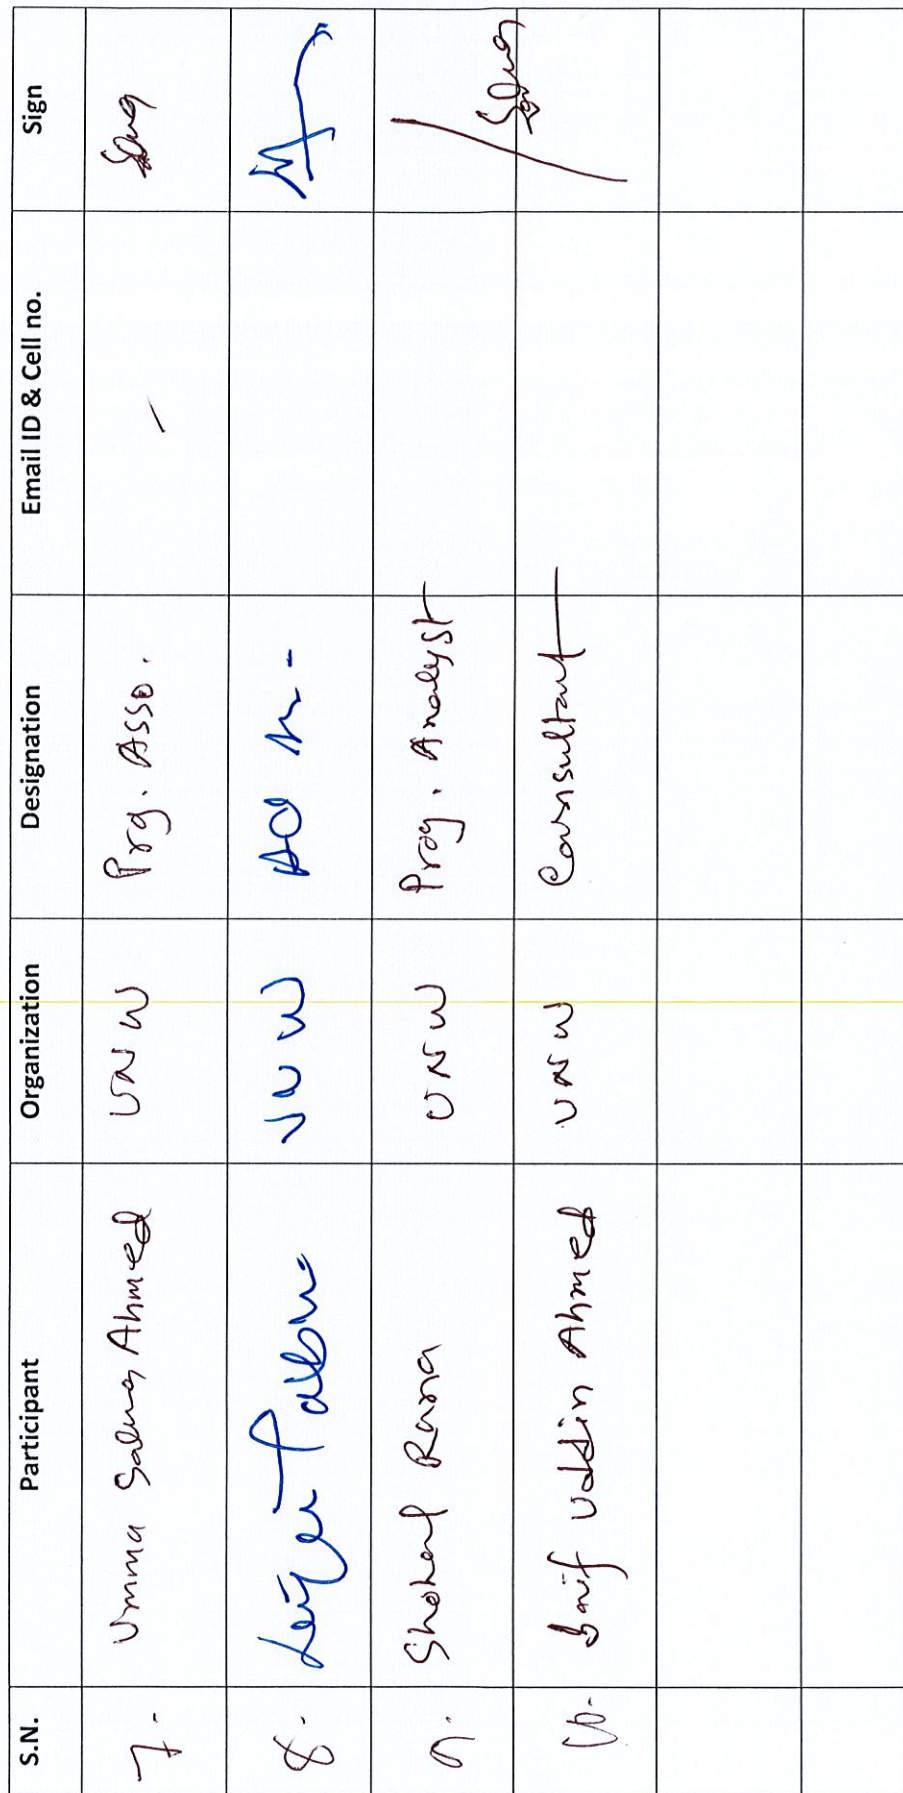 S.N. Participant Organization Designation Email ID & Cell no. Sign
7. Umma Salma Ahmed UNW Prg. Asso. -
8. UNW
9. Shohel Rana UNW Prog. Analyst
10. Saif Uddin Ahmed UNW Consultant